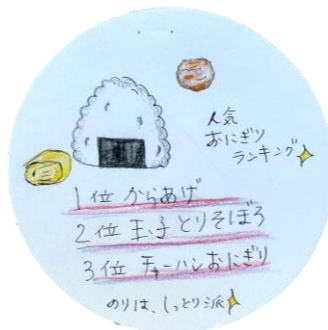 人気
おにぎり
ランキング
1位 からあげ
2位 玉子とりそぼろ
3位 チャーハンおにぎり
のりは、しっとり派